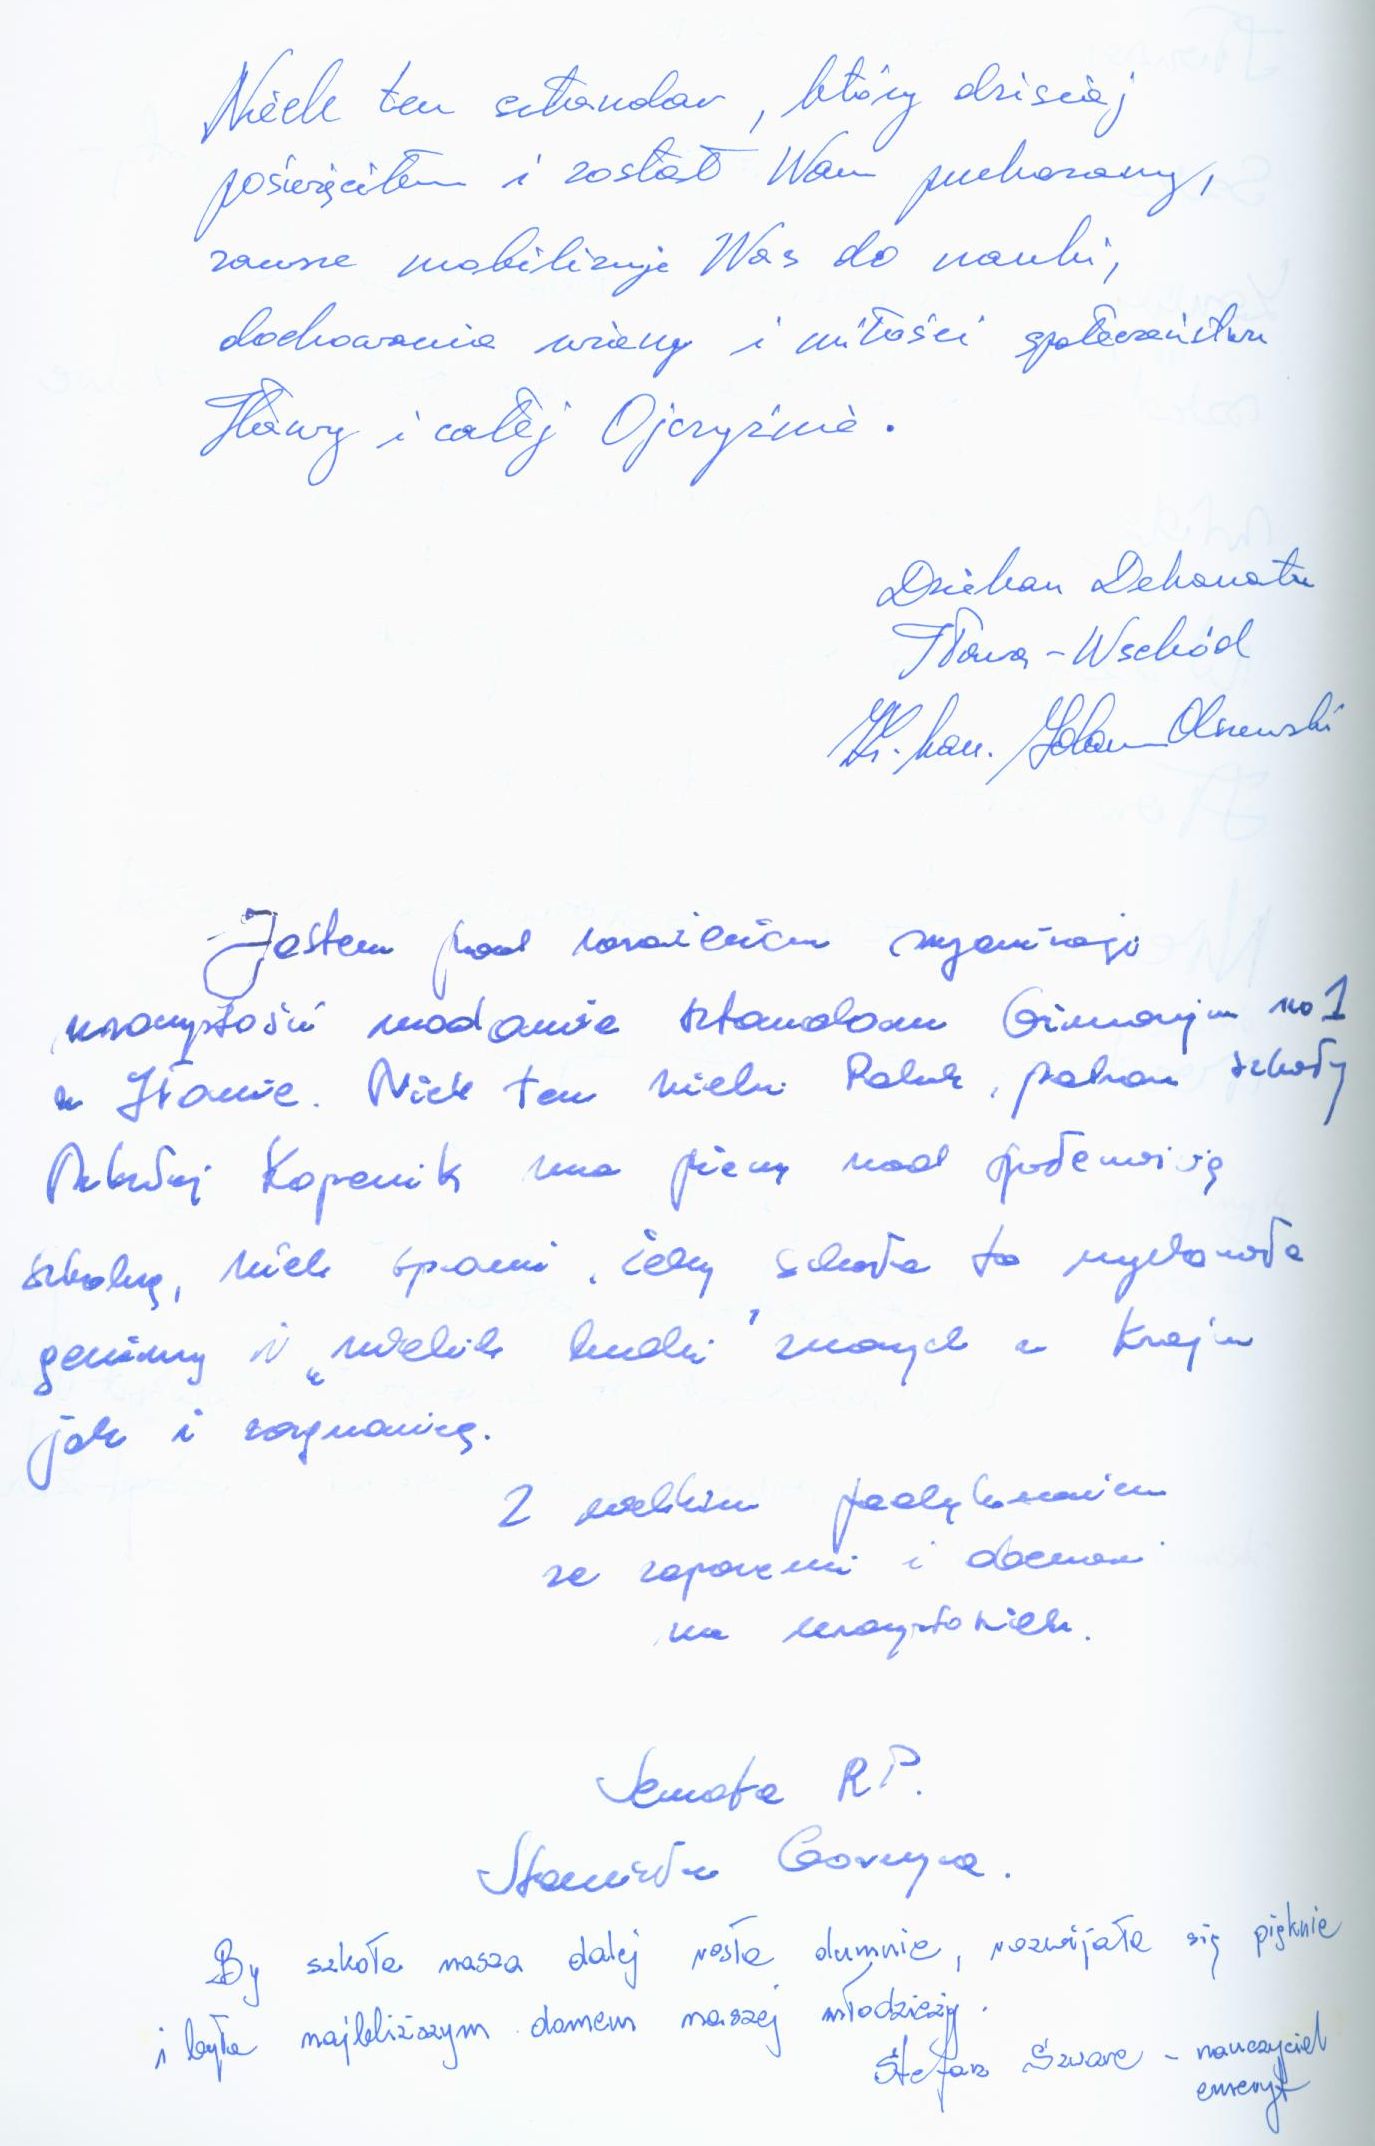 Niech ten sztandar, który dzisiaj
poświęciłem i został Wam przekazany,
zawsze mobilizuje Was do nauki,
dochowania wiary i miłości społeczeństwu
Iławy i całej Ojczyźnie.
Dziekan Dekanatu
Iława-Wschód
Ks. kan. Olszewski
Jestem pod wrażeniem organizacji
uroczystości nadania sztandaru Gimnazjum no 1
w Iławie. Niech ten wielki Polak, patron szkoły
Mikołaj Kopernik ma pieczę nad
szkolną, niech sprawi, żeby szkoła ta wychowała
geniuszy i "wielkich ludzi" znanych w Kraju
jak i zagranicą.
Z wielkim podziękowaniem
za zaproszenie i
na uroczystościach.
Senator RP.
Stanisław Gorczyca.
By szkoła nasza dalej rosła dumnie, rozwijała się pięknie
i była najbliższym domem naszej młodzieży.
Stefan Szwarc - nauczyciel
emeryt